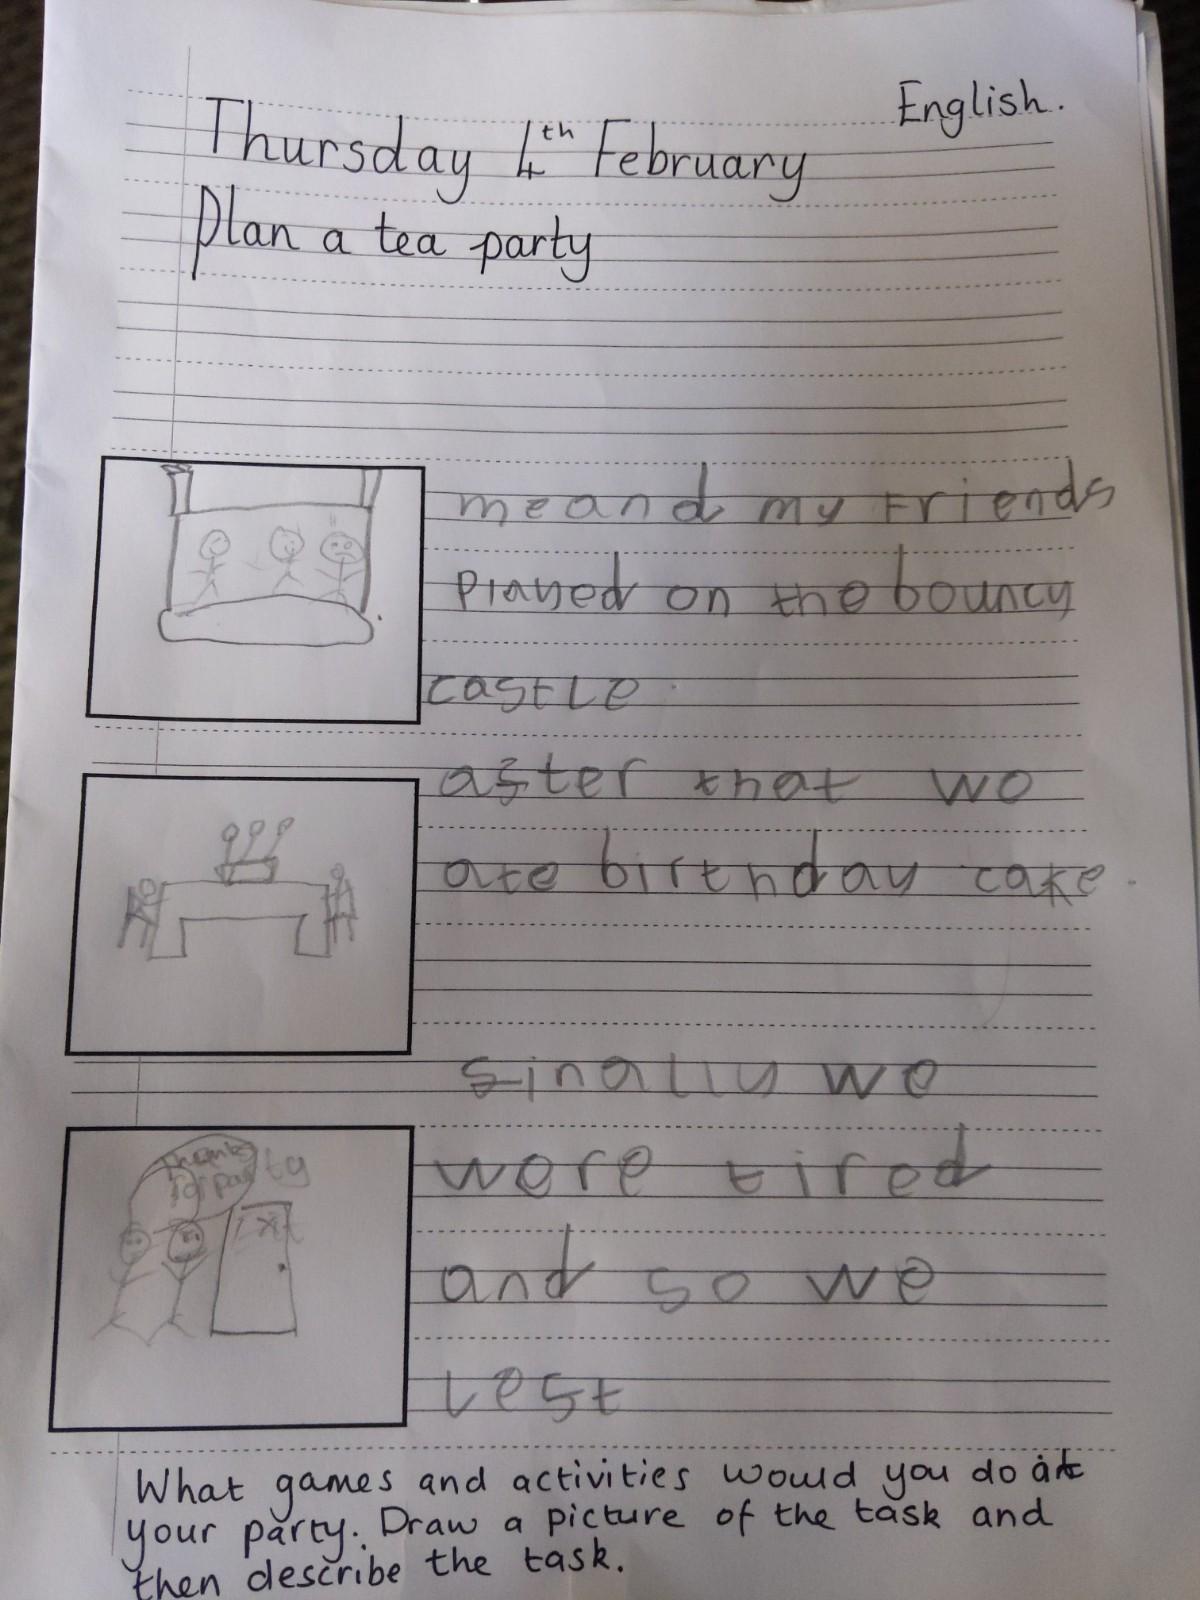 English.
Thursday 4th February
Plan a tea party
me and my Friends
Played on the bouncy
castle.
after that we
ate birthday cake.
finally we
were tired
and so we
lest
Thanks
for party
Exit
What games and activities would you do at
your party. Draw a picture of the task and
then describe the task.